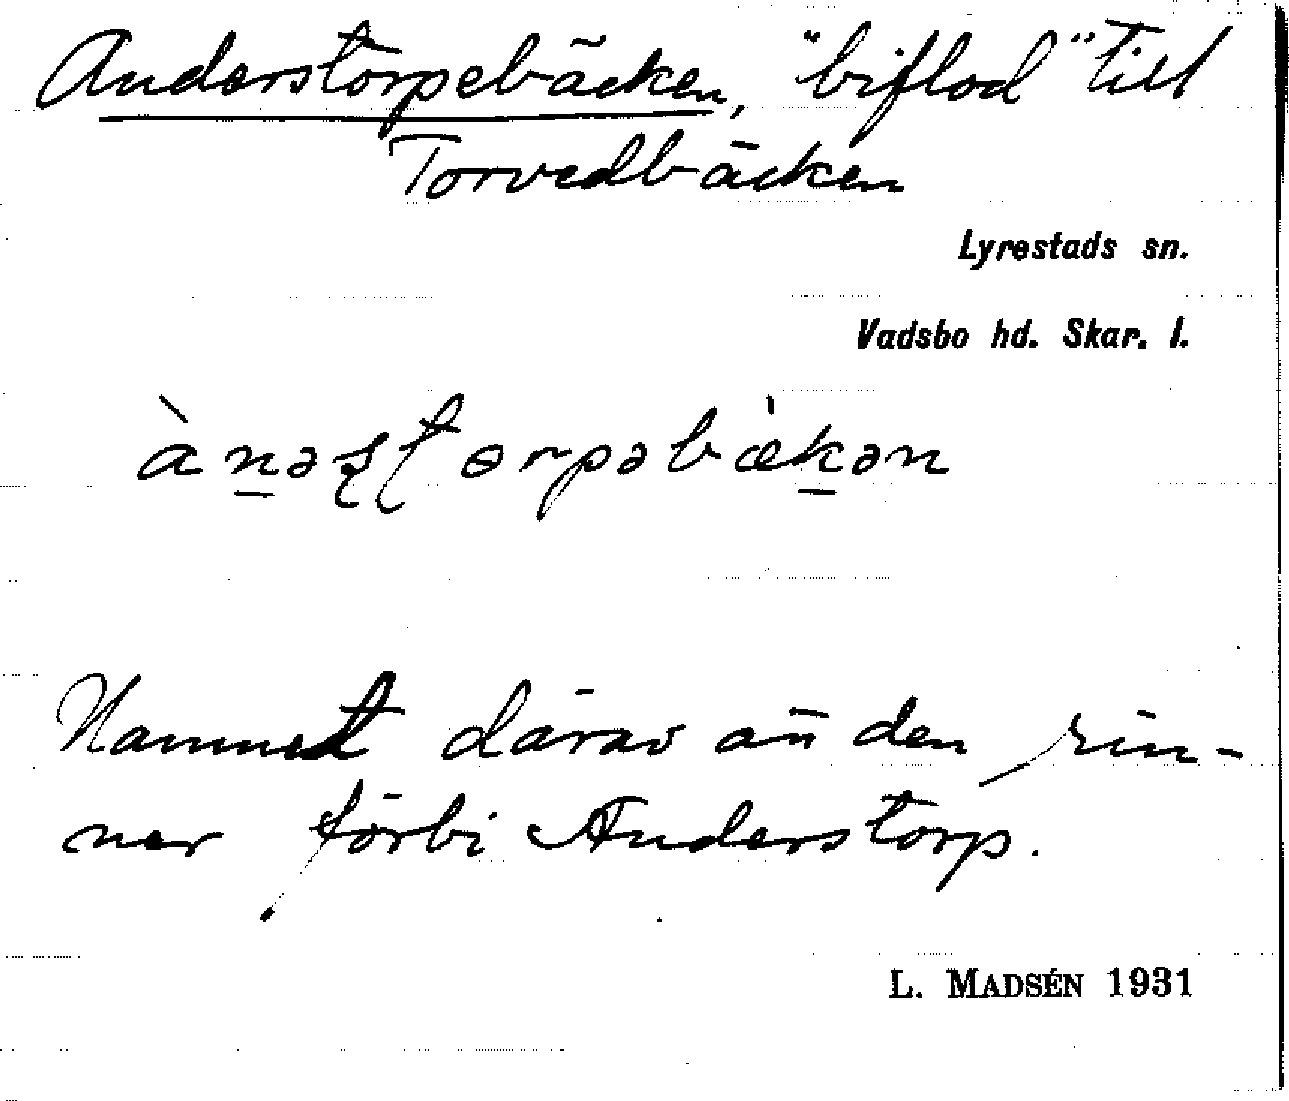 Anderstorpebäcken, "biflod" till
Torvedbäcken
Lyrestads sn.
Vadsbo hd. Skar. l.
ànəʂʈɵrpəbæ̀kən
Namnet därav att den rin-
ner förbi Anderstorp.
L. MADSÉN 1931